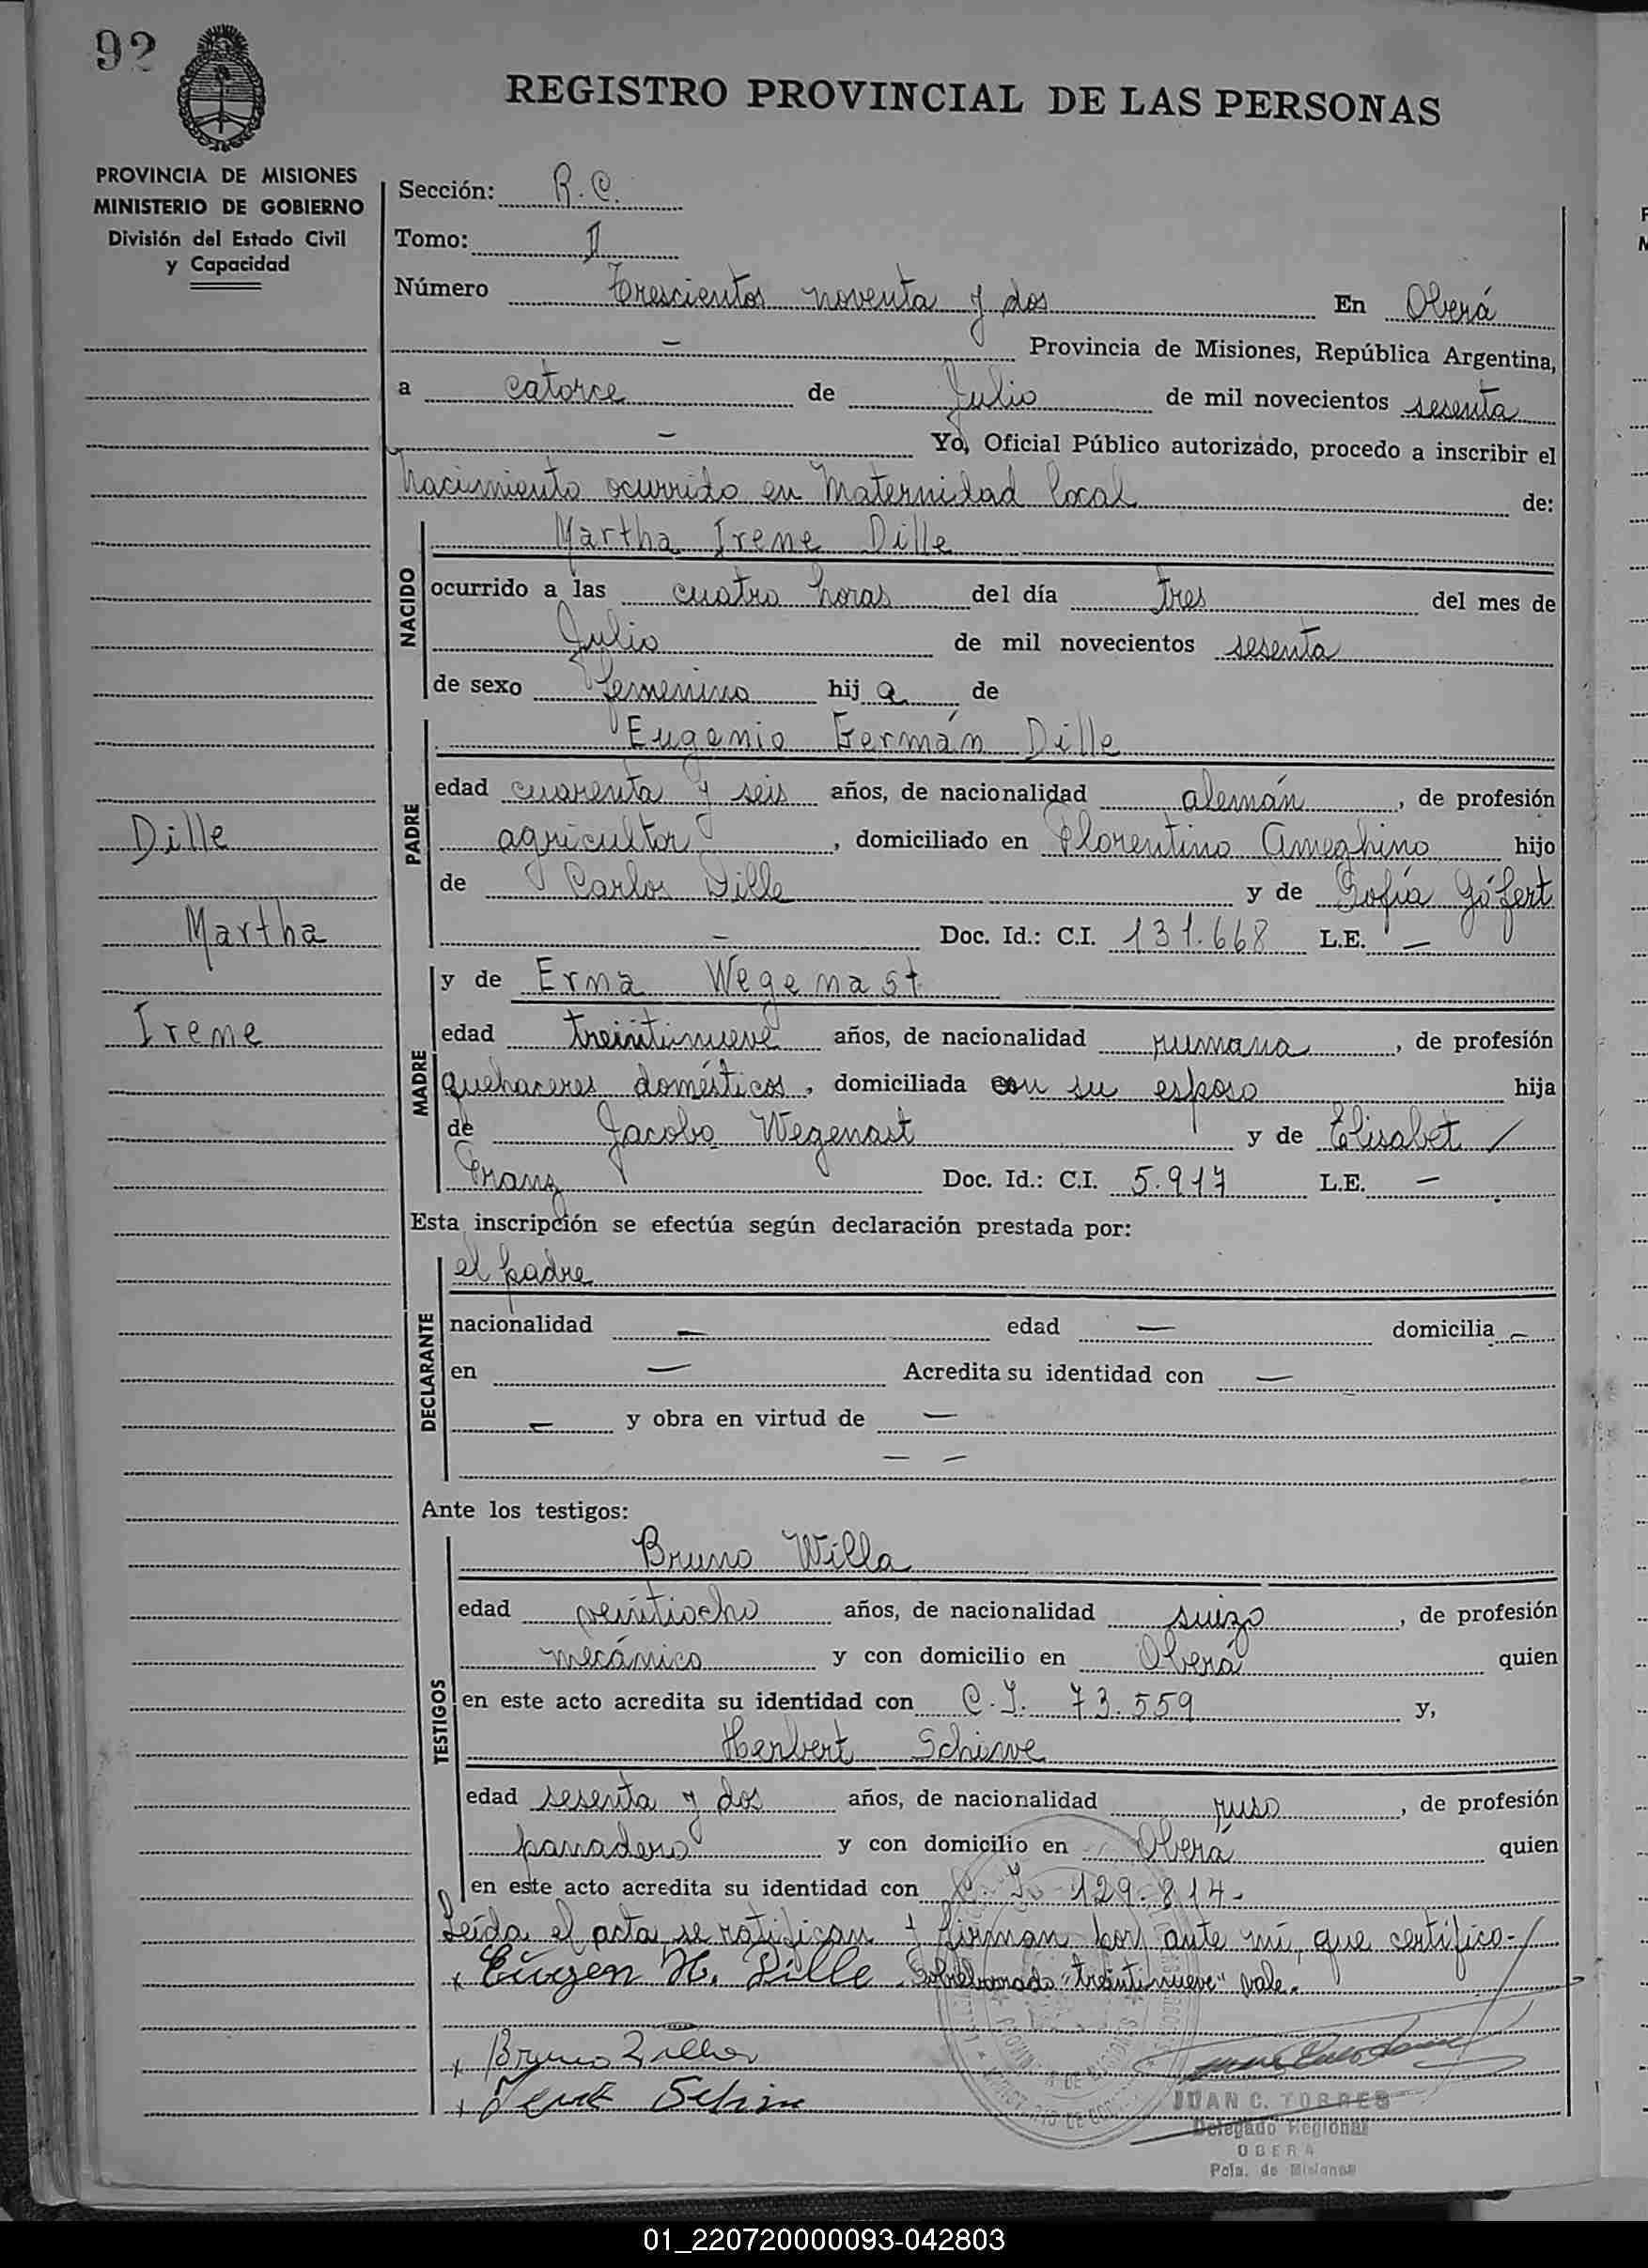 92
REGISTRO PROVINCIAL DE LAS PERSONAS
PROVINCIA DE MISIONES
MINISTERIO DE GOBIERNO
División del Estado Civil
y Capacidad
Sección: R. C.
Tomo: II
Número Trescientos noventa y dos En Oberá
— Provincia de Misiones, República Argentina,
a catorce de Julio de mil novecientos sesenta
— Yo, Oficial Público autorizado, procedo a inscribir el
Nacimiento ocurrido en Maternidad local de:
NACIDO
Martha Irene Dille
ocurrido a las cuatro horas del día tres del mes de
Julio de mil novecientos sesenta
de sexo femenino hij a de
PADRE
Eugenio Germán Dille
edad cuarenta y seis años, de nacionalidad alemán, de profesión
agricultor, domiciliado en Florentino Ameghino hijo
de Carlos Dille y de Sofía Gófert
— Doc. Id.: C.I. 131.668 L.E. —
Dille
Martha
Irene
MADRE
y de Erma Wegenast
edad treintinueve años, de nacionalidad rumana, de profesión
quehaceres domésticos, domiciliada con su esposo hija
de Jacobo Wegenast y de Elisabet /
Franz Doc. Id.: C.I. 5.917 L.E. —
Esta inscripción se efectúa según declaración prestada por:
DECLARANTE
el padre
nacionalidad — edad — domicilia —
en — Acredita su identidad con —
— y obra en virtud de —
— —
Ante los testigos:
TESTIGOS
Bruno Willa
edad veintiocho años, de nacionalidad suizo, de profesión
mecánico y con domicilio en Oberá quien
en este acto acredita su identidad con C. I. 73.559 y,
Herbert Schirve
edad sesenta y dos años, de nacionalidad ruso, de profesión
panadero y con domicilio en Oberá quien
en este acto acredita su identidad con C. I. 129.814.-
Leída el acta se ratifican y firman por ante mí, que certifico.-
x Eugen H. Dille. Sobreborrado "treintinueve" vale.
x Bruno
x
JUAN C. TORRES
Delegado Regional
OBERA
Pcia. de Misiones
01_220720000093-042803